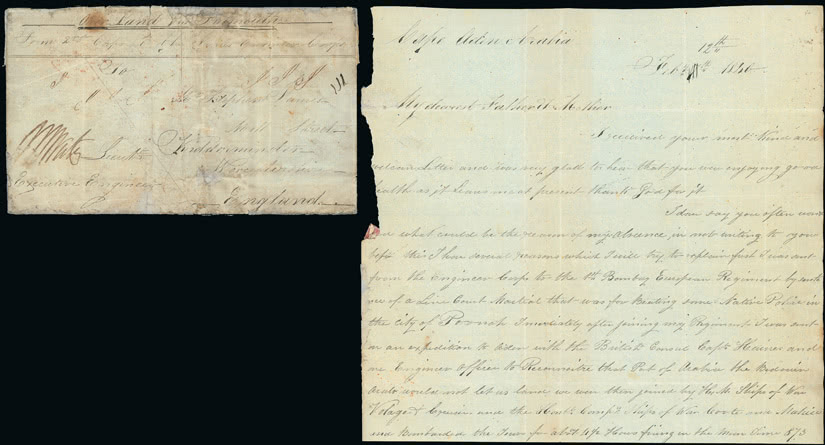 Over Land via Falmouth
To
Mr Stephen James
North Street
Lieut Kidderminster
Executive Engineer
England
Cape Aden Arabia
12th
1840
My dearest Father & Mother
I received your most kind and
welcome Letter and was very glad to hear that you were enjoying good
health as it Leaves me at present thank God for it
I dare say you often won
what could be the reason of my absence in not writing to you
before this I have several reasons which I will try to explain first I was sent
from the Engineer Corps to the 1st Bombay European Regiment by sent
ce of a Line Court Martial that was for Beating some Native Police in
the City of Poonah Immediately after joining my Regiment I was sent
on an expedition to Aden with the British Consul Captn Haines and
one Engineer officer to Reconnoitre that Part of Arabia the Bedouin
Arabs would not let us land we were then joined by H. M. Ships of War
Volage & Cruiser and the Honble Compy Ships of War Coote and Mahie
and Bombarded the Town for abt 4½ Hours firing in the mean Time 873